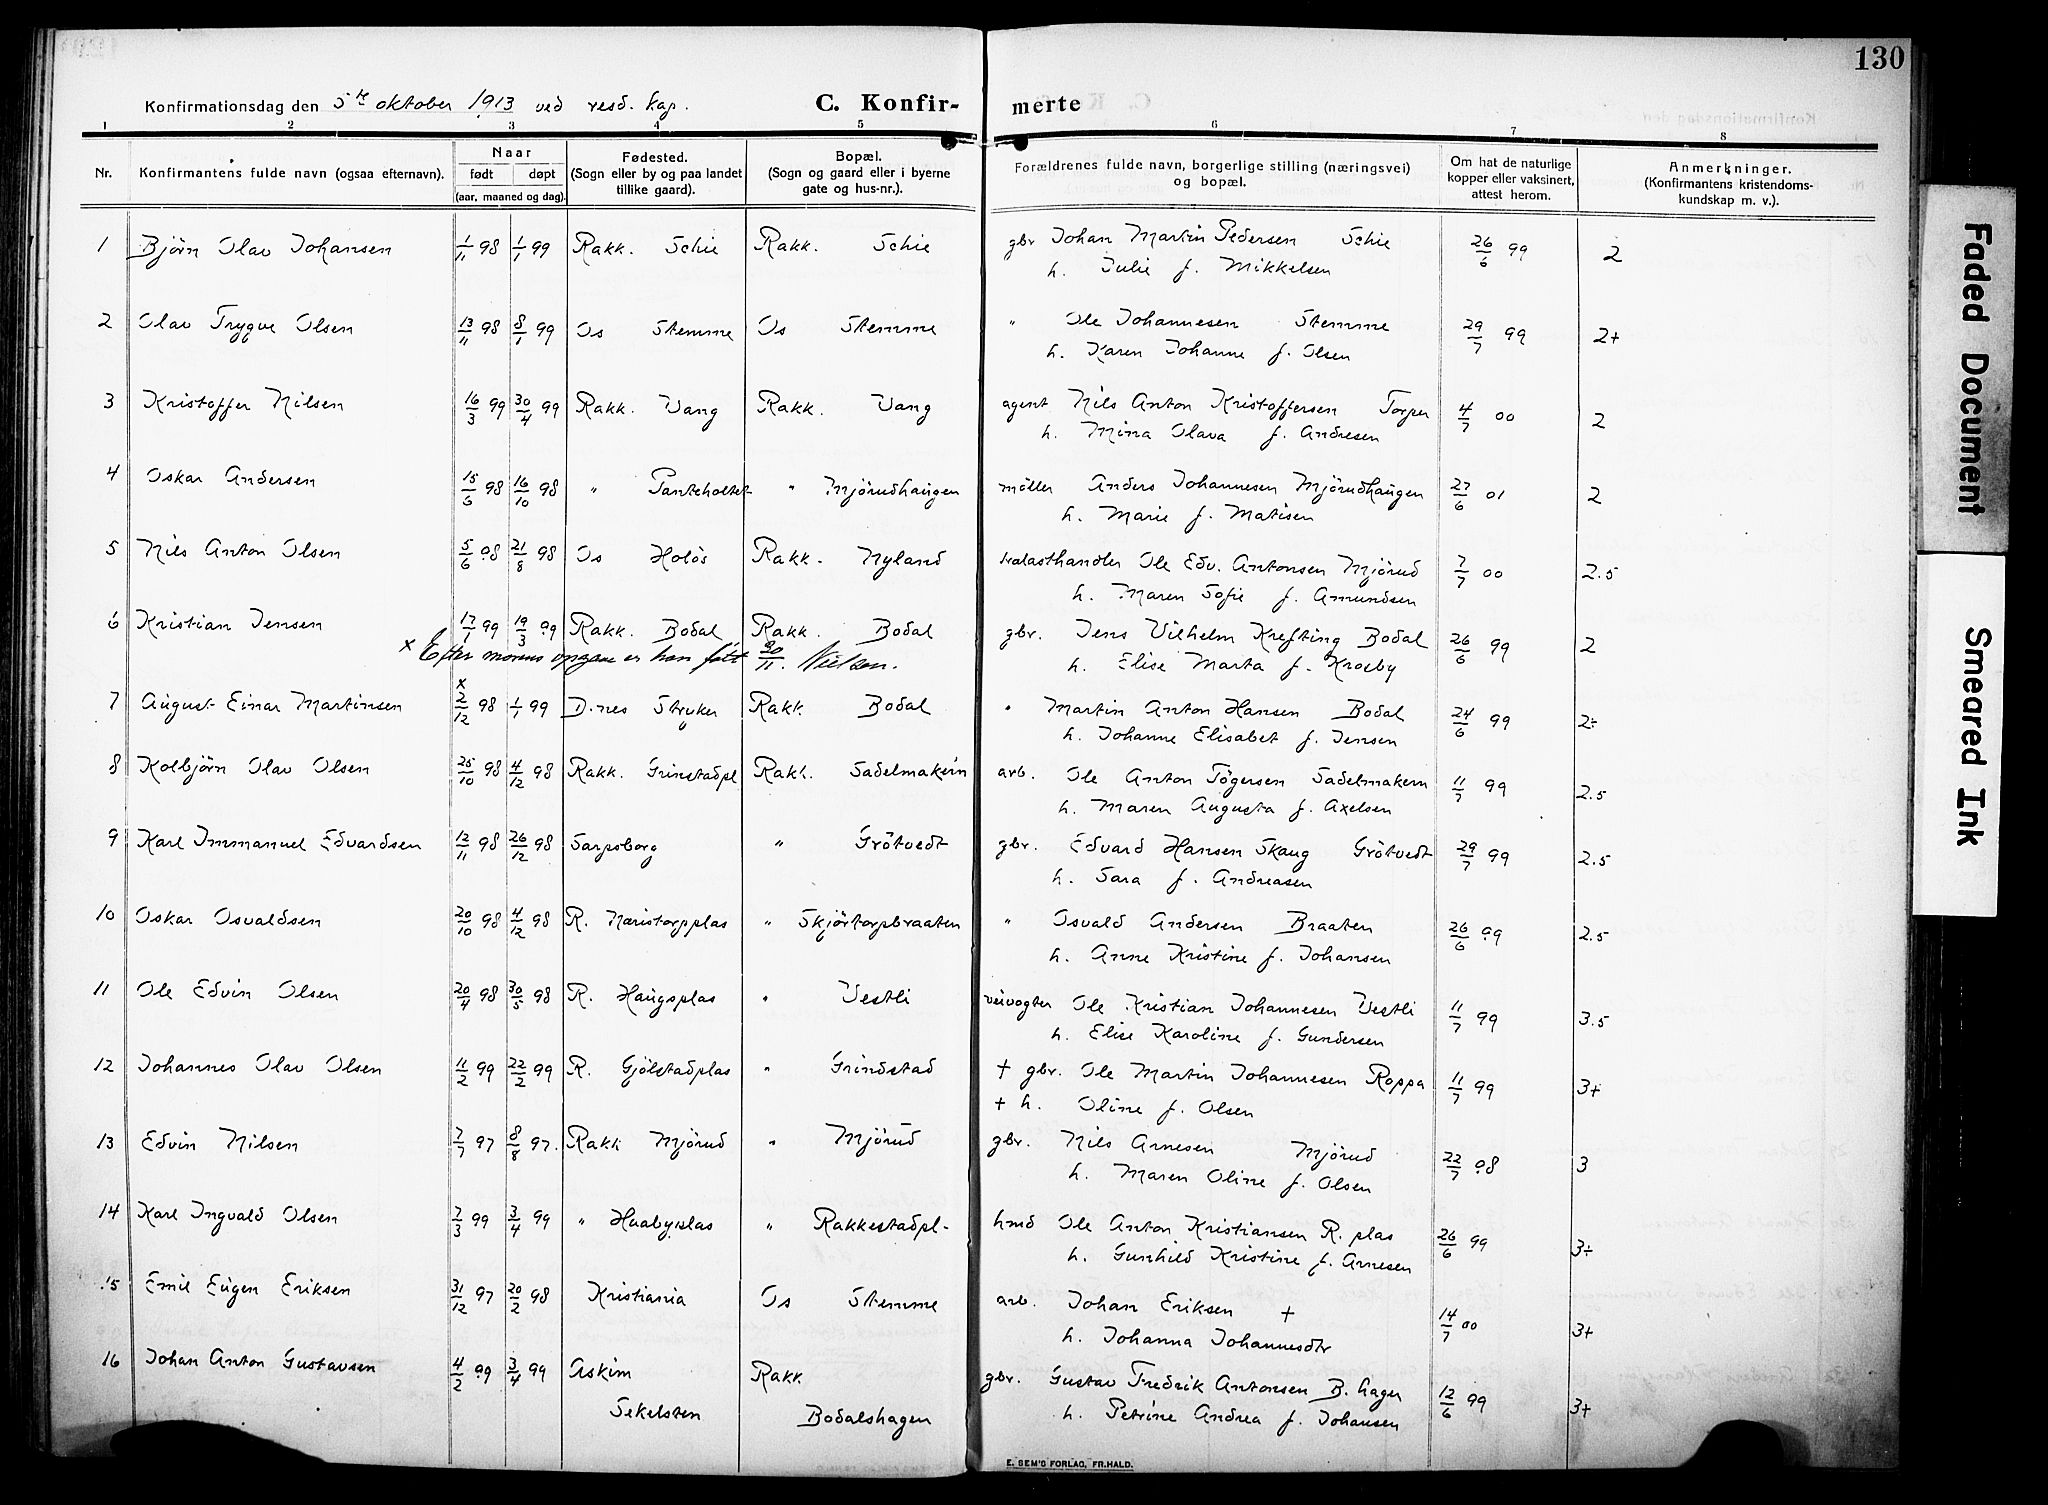 130
Konfirmationsdag den 5te oktober 1913 ved resd. kap. C. Konfir- merte
1 2 3 4 5 6 7 8
Nr. Konfirmantens fulde navn (ogsaa efternavn). Naar født døpt (aar, maaned og dag). Fødested. (Sogn eller by og paa landet tillike gaard). Bopæl. (Sogn og gaard eller i byerne gate og hus-nr.). Forældrenes fulde navn, borgerlige stilling (næringsvei) og bopæl. Om hat de naturlige kopper eller vaksinert, attest herom. Anmerkninger. (Konfirmantens kristendoms-kundskap m. v.).
1 Björn Olav Johansen 1/11 98 1/1 99 Rakk. Schie Rakk. Schie gbr Johan Martin Pedersen Schie 26/6 99 2
h. Julie f. Mikkelsen
2 Olav Trygve Olsen 13/11 98 8/1 99 Os Stemme Os Stemme " Ole Johannesen Stemme 29/7 99 2+
h. Karen Johanne f. Olsen
3 Kristoffer Nilsen 16/3 99 30/4 99 Rakk. Vang Rakk. Vang agent Nils Anton Kristoffersen Torper 4/7 00 2
h. Mina Olava f. Andresen
4 Oskar Andersen 15/6 98 16/10 98 " Tanteholtet " Mjörudhaugen möller Anders Johannesen Mjörudhaugen 27/6 01 2
h. Marie f. Matisen
5 Nils Anton Olsen 5/6 98 21/8 98 Os Holös Rakk. Nyland kalasthandler Ole Edv. Antonsen Mjörud 7/7 00 2.5
h. Maren Sofie f. Amundsen
6 Kristian Jensen 17/1 99 19/3 99 Rakk. Bodal Rakk. Bodal gbr. Jens Vilhelm Krefting Bodal 26/6 99 2
h. Elise Marta f. Krosby
x Efter morens opgave er han født 30/11. Nielsen.
7 August Einar Martinsen x 2/12 98 1/1 99 D.nes Stryker Rakk. Bodal " Martin Anton Hansen Bodal 24/6 99 2÷
h. Johanne Elisabet f. Jensen
8 Kolbjörn Olav Olsen 25/10 98 4/12 98 Rakk. Grinstadpl Rakk. Sadelmakern arb. Ole Anton Tögersen Sadelmakern 11/7 99 2.5
h. Maren Augusta f. Axelsen
9 Karl Immanuel Edvardsen 12/11 98 26/12 98 Sarpsborg " Grötvedt gbr. Edvard Hansen Skaug Grötvedt 29/7 99 2.5
h. Sara f. Andreasen
10 Oskar Osvaldsen 20/10 98 4/12 98 R. Næristorpplas " Skjörtorpbraaten " Osvald Andersen Braaten 26/6 99 2.5
h. Anne Kristine f. Johansen
11 Ole Edvin Olsen 20/4 98 30/5 98 R. Haugsplas " Vestli veivogter Ole Kristian Johannesen Vestli 11/7 99 3.5
h. Elise Karoline f. Gundersen
12 Johannes Olav Olsen 11/2 99 22/2 99 R. Gjölstadplas " Grindstad + gbr. Ole Martin Johannesen Roppa 11/7 99 3+
+ h. Oline f. Olsen
13 Edvin Nilsen 7/7 97 8/8 97. Rakk Mjörud " Mjörud gbr. Nils Arnesen Mjörud 22/7 98 3
h. Maren Oline f. Olsen
14 Karl Ingvald Olsen 7/3 99 3/4 99 " Huabyplas " Rakkestadpl- hmd Ole Anton Kristiansen R. plas 26/6 99 3÷
h. Gunhild Kristine f. Arnesen
15 Emil Eugen Eriksen 31/12 97 20/2 98 Kristiania Os Stemme arb. Johan Eriksen + 14/7 00 3+
h. Johanna Johannesdtr
16 Johan Anton Gustavsen 4/2 99 3/4 99 Askim Rakk. gbr. Gustav Fredrik Antonsen B. hagen 12/6 99 3+
Sekelsten Bodalshagen h. Petrine Andrea f. Johansen
E. SEM'S FORLAG, FR.HALD.
Faded Document
Smeared Ink